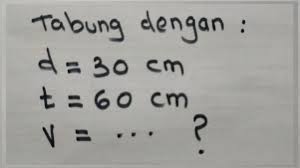 Tabung dengan :
d = 30 cm
t = 60 cm
V = ... ?